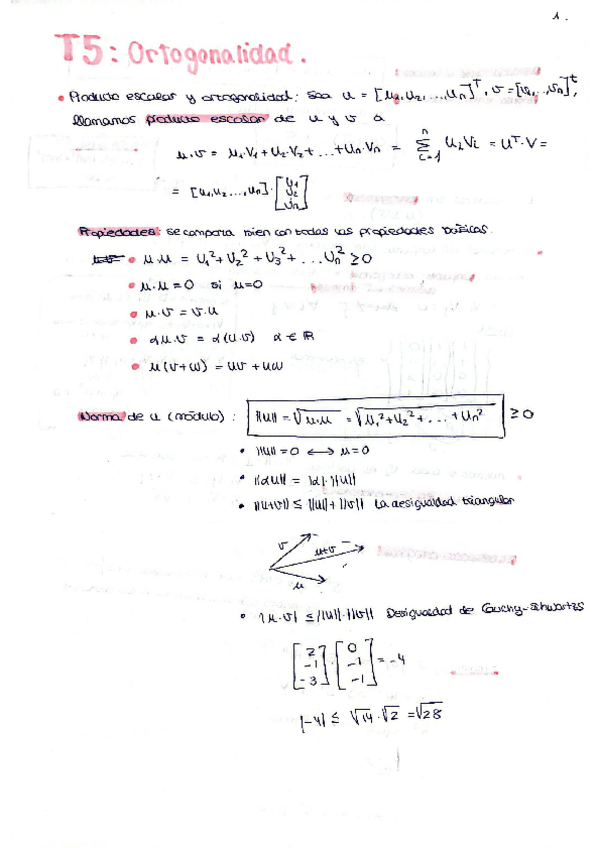 1.
T5: Ortogonalidad.
• Producto escalar y ortogonalidad: Sea u = [u₁, u₂, ..., uₙ]ᵀ, v = [v₁, ..., vₙ]ᵗ,
llamamos producto escalar de u y v a
u·v = u₁·v₁ + u₂·v₂ + ... + uₙ·vₙ = ∑ⁿᵢ₌₁ uᵢvᵢ = uᵀ·v =
= [u₁, u₂, ..., uₙ]·[v₁ v₂ ⋮ vₙ]
Propiedades: se comporta bien con todas las propiedades básicas.
• u·u = u₁² + u₂² + u₃² + ... uₙ² ≥ 0
• u·u = 0 si u=0
• u·v = v·u
• αu·v = α(u·v) α ∈ ℝ
• u(v+w) = uv + uw
Norma de u (módulo): ||u|| = √u·u = √u₁² + u₂² + ... + uₙ² ≥ 0
• ||u|| = 0 ⟷ u=0
• ||αu|| = |α|·||u||
• ||u+v|| ≤ ||u|| + ||v|| La desigualdad triangular
v
u+v
u
• |u·v| ≤ ||u||·||v|| Desigualdad de Cauchy-Schwartzs
[2 -1 -3]·[0 -1 -1] = -4
|-4| ≤ √14·√2 = √28